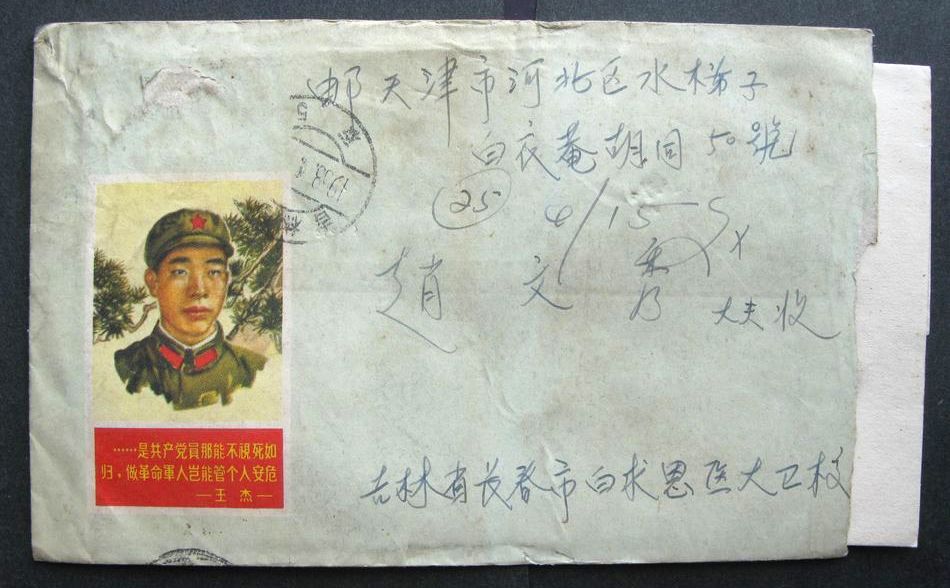 邮天津市河北区水梯子
白衣菴胡同50號
25
4/15
赵 文 秀 大夫收
……是共产党員那能不視死如
归，做革命軍人岂能管个人安危
—王 杰—
吉林省长春市白求恩医大卫校